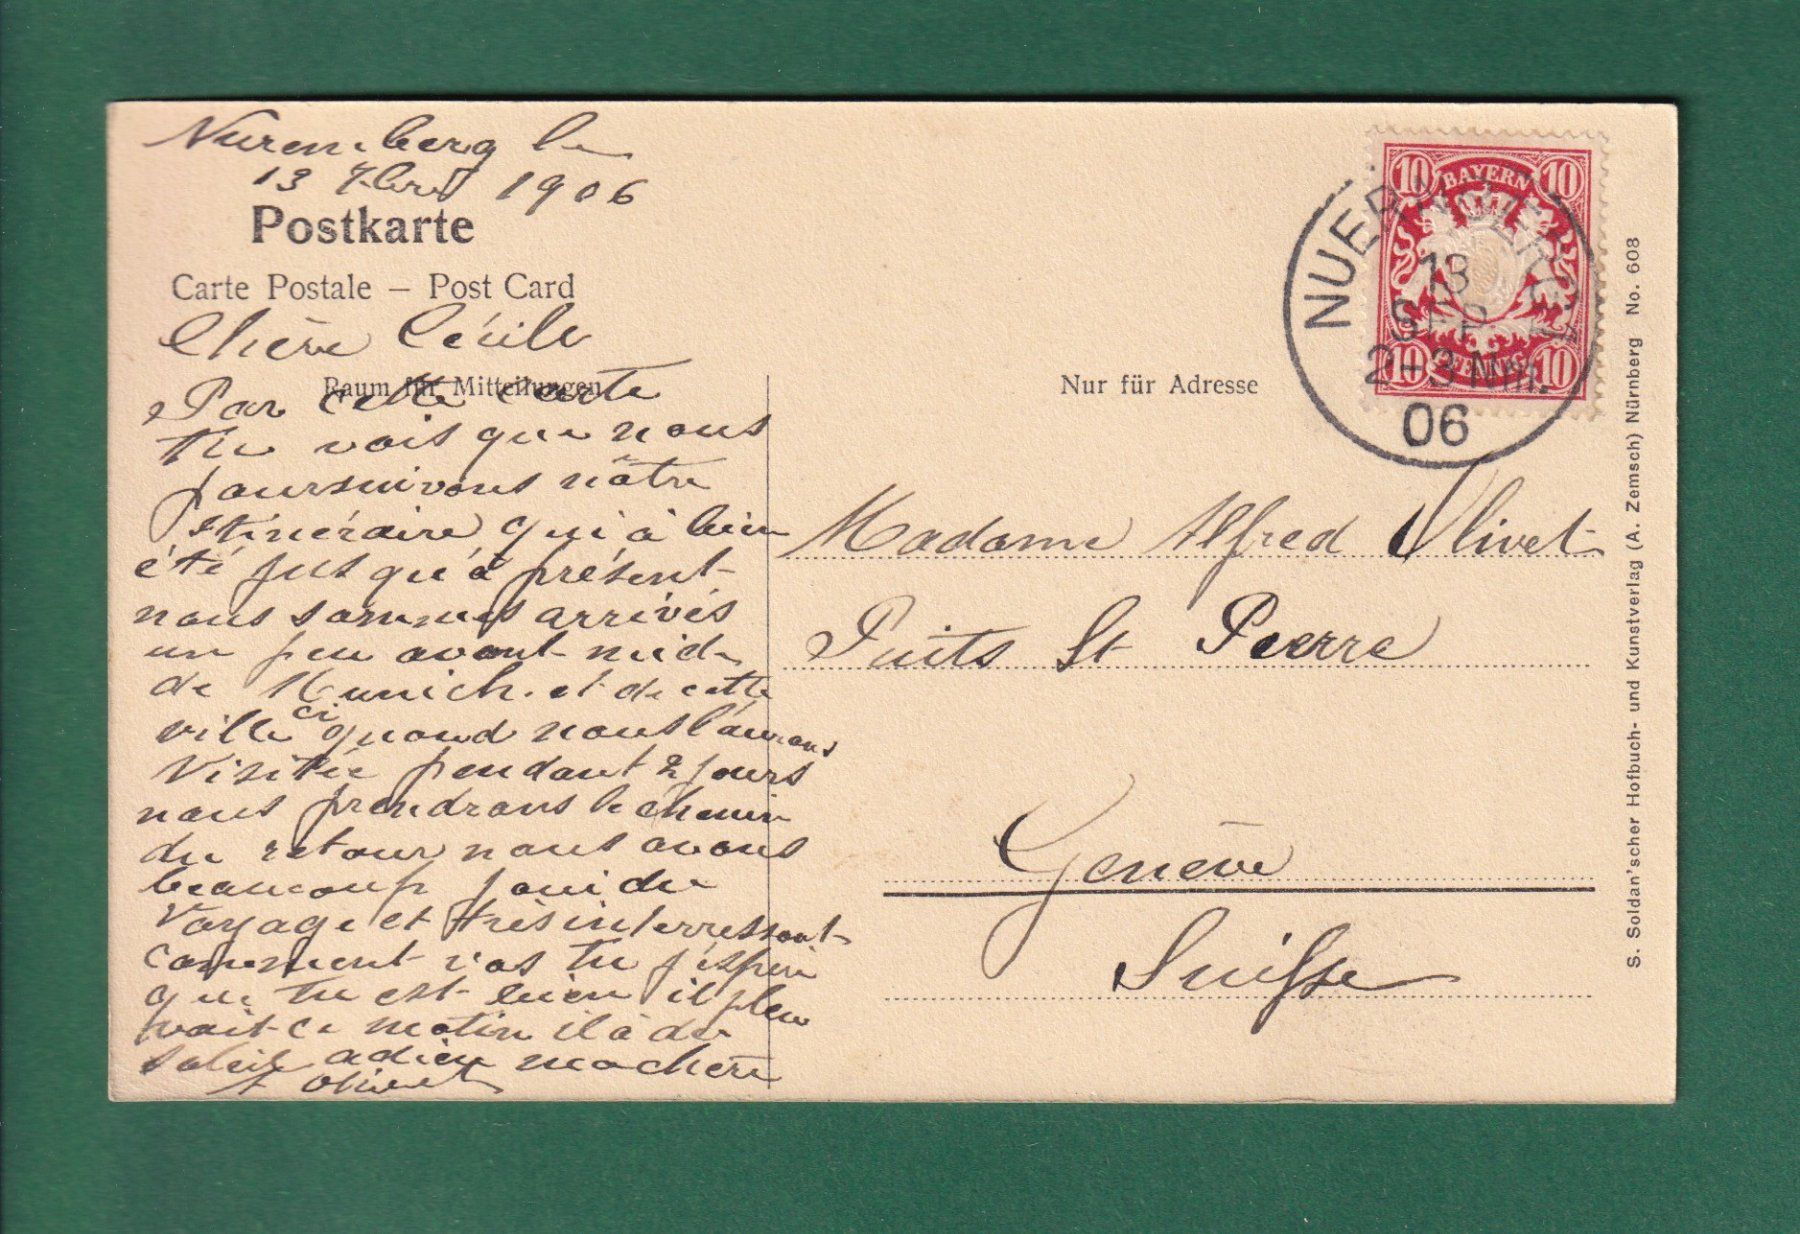 Nuremberg le
13 7bre 1906
Postkarte
Carte Postale – Post Card
Chère Cécile
Raum für Mitteilungen
Par cette carte
tu vois que nous
poursuivons nôtre
itinéraire qui à bien
été jus qu'à présent
nous sommes arrivés
un peu avant midi
de Munich. et de cette
ville ci quand nous l'aurons
visitée pendant 2 jours
nous prendrons le chemin
du retour nous avons
beaucoup joui du
voyage et très interressant
comment vas tu j'espère
que tu est bien il pleu
vait ce matin il à du
soleil adieu ma chère
Olivet
Nur für Adresse
BAYERN
10 10
10 PFENNIG 10
NUERNBERG
13
SEP
2-3 Nm.
06
Madame Alfred Olivet
Puits St Pierre
Genève
Suisse
S. Soldan'scher Hofbuch- und Kunstverlag (A. Zemsch) Nürnberg No. 608